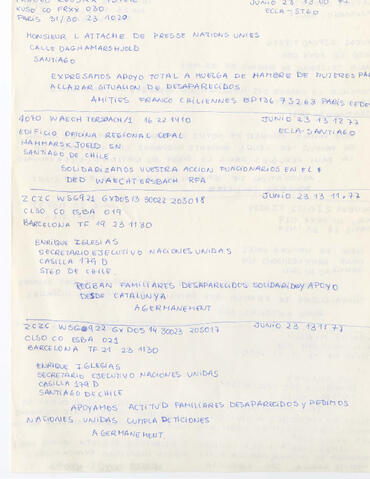 JUNIO 23 13 00 77
KUSO CO FRXX 030
ECLA-STGO
PARIS 31/30 23 1020
MONSIEUR L ATTACHE DE PRESSE NATIONS UNIES
CALLE DAGHAMARSHJOLD
SANTIAGO
EXPRESAMOS APOYO TOTAL A HUELGA DE HAMBRE DE MUJERES PARA
ACLARAR SITUACION DE DESAPARECIDOS
AMITIES FRANCO CHILIENNES BP136 75263 PARIS CEDE
4070 WAECHTERSBACH/1 16 22 1410 JUNIO 23 13 12 77
EDIFICIO OFICINA REGIONAL CEPAL ECLA-SANTIAGO
HAMMARSKJOELD SN
SANTIAGO DE CHILE
SOLIDARIZAMOS VUESTRA ACCION FUNCIONARIOS EN EL
DED WAECHTERSBACH RFA
ZCZC WSG921 GXDO513 30022 203018 JUNIO 23 13 11.77
CLSO CO ESBA 019
BARCELONA TF 19 23 1130
ENRIQUE IGLESIAS
SECRETARIO EJECUTIVO NACIONES UNIDAS
CASILLA 179 D
STGO DE CHILE
RECIBAN FAMILIARES DESAPARECIDOS SOLIDARIDAD Y APOYO
DESDE CATALUNYA
AGERMANEMENT
ZCZC WSG922 GXDO5 14 30023 203017 JUNIO 23 13 11 77
CLSO CO ESBA 021
BARCELONA TF 21 23 1130
ENRIQUE IGLESIAS
SECRETARIO EJECUTIVO NACIONES UNIDAS
CASILLA 179 D
SANTIAGO DE CHILE
APOYAMOS ACTITUD FAMILIARES DESAPARECIDOS Y PEDIMOS
NACIONES UNIDAS CUMPLA PETICIONES
AGERMANEMENT